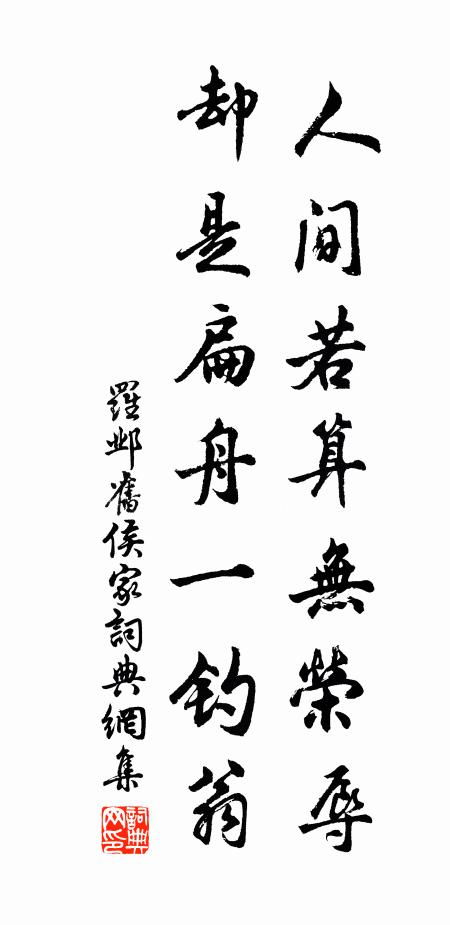 人間若算無榮辱
却是扁舟一釣翁
羅鄴舊侯家詞典網集
詞典网印